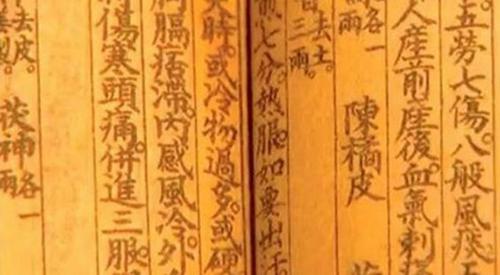 五勞七傷。八般風痰。五
人產前產後血氣刺
各一兩 陳橘皮
去土。三兩。
煎七分熱服。如要出汗
時。或冷物過多。或硬
胸膈痞滯。內感風冷。外
傷寒頭痛。併進三服。
去皮。 茯神各一兩